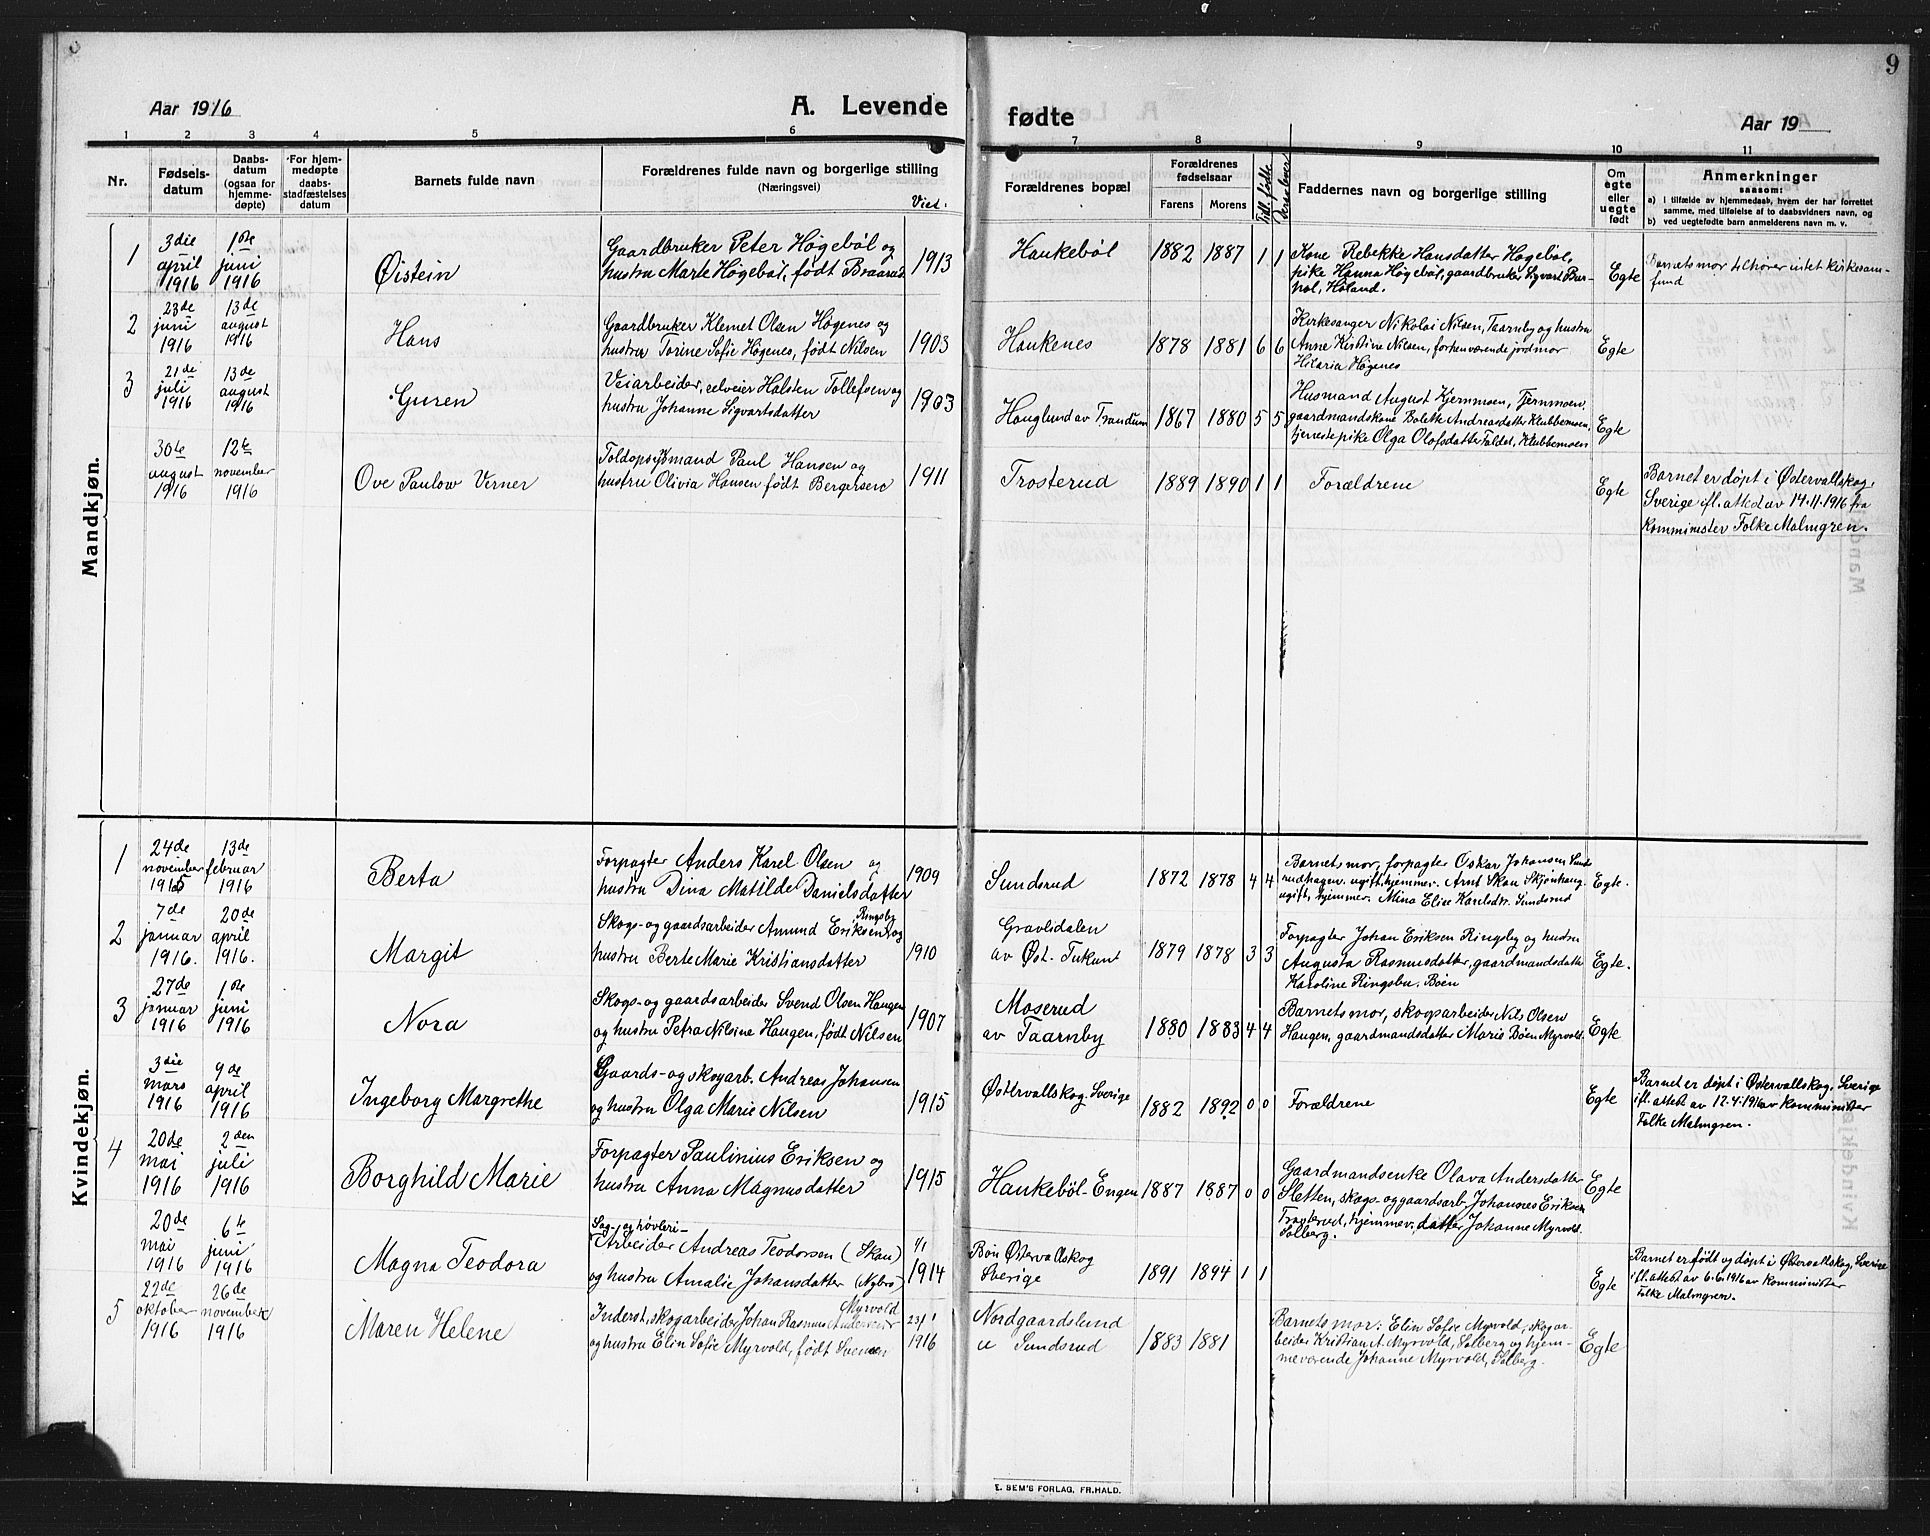 Aar 1916
A. Levende
fødte
Aar 19
9
1 2 3 4 5 6 7 8 9 10 11
Nr.
Fødsels-
datum
Daabs-
datum
(ogsaa for
hjemme-
døpte)
For hjem-
medøpte
daabs-
stadfæstelses
datum
Barnets fulde navn
Forældrenes fulde navn og borgerlige stilling
(Næringsvei)
Viet.
Forældrenes bopæl
Forældrenes
fødselsaar
Farens Morens
Till. fødte
Faddernes navn og borgerlige stilling
Om
egte
eller
uegte
født
Anmerkninger
saasom:
a) i tilfælde av hjemmedaab, hvem der har forrettet
samme, med tilføielse af to daabsvidners navn, og
b) ved uegtefødte barn anmelderens navn m. v.
Mandkjøn.
1
3die
april
1916
1ste
juni
1916
Øistein
Gaardbruker Peter Høgebøl og
hustru Marte Høgebøl, født
1913
Haukebøl
1882 1887 1 1
Kone Rebekke Hansdatter Høgebøl,
pike Hanna Høgebøl, gaardbruker Sigvart
Høland.
Egte
Barnets mor tilhører intet kirkesam-
fund
2
23de
juni
1916
13de
august
1916
Hans
Gaardbruker Klemet Olsen Høgenes og
hustru Torine Sofie Høgenes, født Nilsen
1903
Haukenes
1878 1881 6 6
Kirkesanger Nikolai Nilsen, Taarnby og hustru
Anne Kristine Nilsen, forhenværende jordmor
Hilaria Høgenes
Egte
3
21de
juli
1916
13de
august
1916
Guren
Veiarbeider, selveier Halsten Tollefsen og
hustru Johanne Sigvartsdatter
1903
Hauglund av Trandum
1867 1880 5 5
Husmand August Kjernmoen, Tjernmoen,
gaardmandskone Bolette Andreasdatter Klubbemoen,
tjenestepike Olga Olofsdatter Faldet, Klubbemoen
Egte
30te
august
1916
12te
november
1916
Ove Paulow Verner
Toldopsynsmand Paul Hansen og
hustru Olivia Hansen født Bergersen
1911
Trosterud
1889 1890 1 1
Forældrene
Egte
Barnet er døpt i Østervallskog,
Sverige ifl. attest av 14.11.1916 fra
Komminister Folke Malmgren.
Kvindekjøn.
1
24de
november
1915
13de
februar
1916
Berta
Forpagter Anders Karel Olsen og
hustru Dina Matilde Danielsdatter
1909
Sundsrud
1872 1878 4 4
Barnets mor, forpagter Oskar Johansen Sunds
rudhagen, ugift, hjemmev. Arnt Skau Skjønhaug
ugift, hjemmev. Mina Elise Karlsdtr. Sundsrud
Egte.
2
7de
januar
1916.
20de
april
1916.
Margit
Skogs- og gaardsarbeider Amund Eriksen Ringsby og
hustru Berte Marie Kristiansdatter
1910
Gravlidalen
av Øst. Tukunt
1879 1878 3 3
Forpagter Johan Eriksen Ringsby og hustru
Augusta Rasmusdatter, gaardmandsdatter
Karoline Ringsby. Bøen
Egte.
3
27de
januar
1916
1ste
juni
1916
Nora
Skogs- og gaardsarbeider Svend Olsen Haugen
og hustru Petra Nilsine Haugen, født Nilsen
1907
Moserud
av Taarnby
1880 1883 4 4
Barnets mor, skogsarbeider Nils Olsen
Haugen, gaardmandsdatter Marie Bøen Myrvold.
Egte
3die
mars
1916
9de
april
1916
Ingeborg Margrethe
Gaards- og skogarb. Andreas Johansen
og hustru Olga Marie Nilsen
1915
Østervallskog. Sverige
1882 1892 0 0
Forældrene
Egte
Barnet er døpt i Østervallskog, Sverige
ifl. attest av 12.4.1916 av Komminister
Folke Malmgren.
4
20de
mai
1916
2den
juli
1916
Borghild Marie
Forpagter Paulinius Eriksen og
hustru Anna Magnusdatter
1915
Haukebøl-Engen
1887 1887 0 0
Gaardmandsenke Olava Andersdatter
Sletten, skogs- og gaardsarb. Johannes Eriksen
Trosterud, hjemmev. datter Johanne Myrvold.
Solberg.
Egte
20de
mai
1916
6te
juni
1916
Magna Teodora
Sag- og høvleri-
Arbeider Andreas Teodorsen (Skau)
og hustru Amalie Johansdatter (Nybro)
1/1
1914
Bøn Østervallskog
Sverige
1891 1894 1 1
Egte
Barnet er født og døpt i Østervallskog, Sverige
ifl. attest av 6.6.1916 av Komminister
Folke Malmgren.
5
22de
oktober
1916
26de
november
1916
Maren Helene
Inderst, skogarbeider Johan Rasmus Andersen Myrvold
og hustru Elin Sofie Myrvold, født Svensen
23/1
1916
Nordgaardslund
u Sundsrud
1883 1881
Barnets mor: Elin Sofie Myrvold, skogar-
beider Kristian A. Myrvold, Solberg og hjem-
meværende Johanne Myrvold, Solberg.
Egte
E. SEM'S FORLAG, FR.HALD.